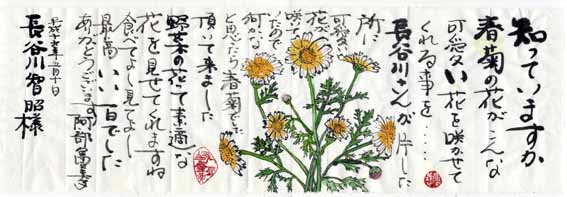 知っていますか
春菊の花がこんな
可愛い花を咲かせて
くれる事を・・・・
長谷川さんが片した
所に
可愛い
花が
咲いて
いたので
何かな
と思ったら春菊でした
頂いて来ました
野菜の花って素適な
花を見せてくれますね
食べてよし見てよし
最高 いい一日でした
ありがとうございます
長谷川智昭様